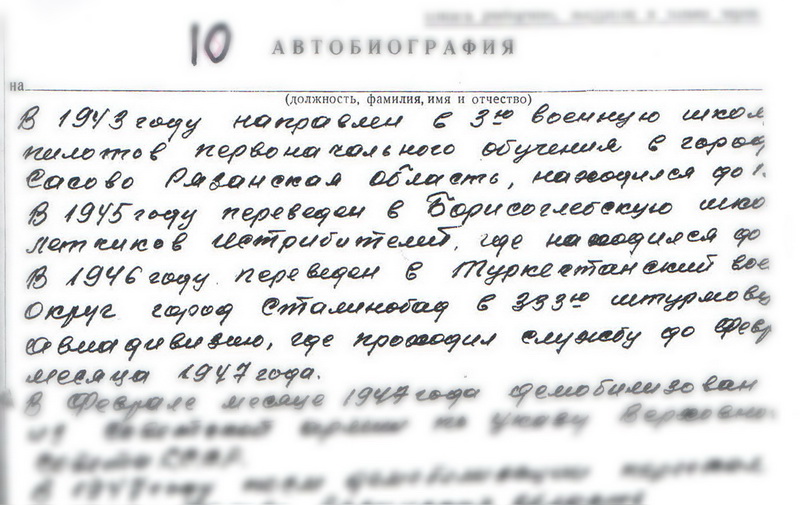 10
АВТОБИОГРАФИЯ
на
(должность, фамилия, имя и отчество)
В 1943 году направлен в 3ю военную школ
пилотов первоначального обучения в город
Сасово Рязанская область, находился до 1.
В 1945 году переведен в Борисоглебскую шко
летчиков истрибителей, где находился до
В 1946 году переведен в Туркестанский вое
округ город Сталинобад в 333ю штурмову
авиадивизию, где проходил службу до фев
месяца 1947 года.
В феврале месяце 1947 года демобилизован
из Советской армии по указу Верховно
Совета СССР.
В 1947 году после демобилизации